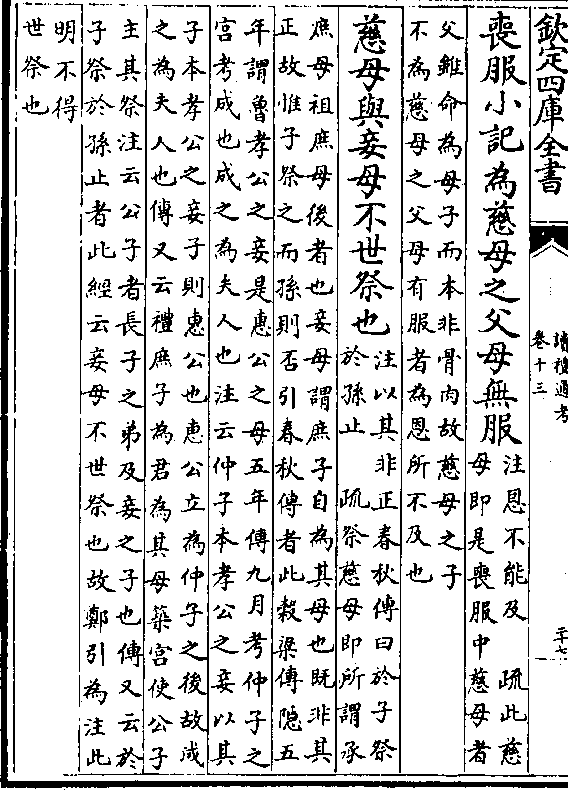 欽定四庫全書
讀禮通考
卷十三
二十七
喪服小記為慈母之父母無服
注恩不能及　疏此慈
母即是喪服中慈母者
父雖命為母子而本非骨肉故慈母之子
不為慈母之父母有服者為恩所不及也
慈母與妾母不世祭也
注以其非正春秋傳曰於子祭
於孫止　疏祭慈母即所謂承
庶母祖庶母後者也妾母謂庶子自為其母也既非其
正故惟子祭之而孫則否引春秋傳者此榖梁傳隱五
年謂魯孝公之妾是惠公之母五年傳九月考仲子之
宮考成也成之為夫人也注云仲子本孝公之妾以其
子本孝公之妾子則惠公也惠公立為仲子之後故成
之為夫人也傳又云禮庶子為君為其母築宮使公子
主其祭注云公子者長子之弟及妾之子也傳又云於
子祭於孫止者此經云妾母不世祭也故鄭引為注此
明不得
世祭也